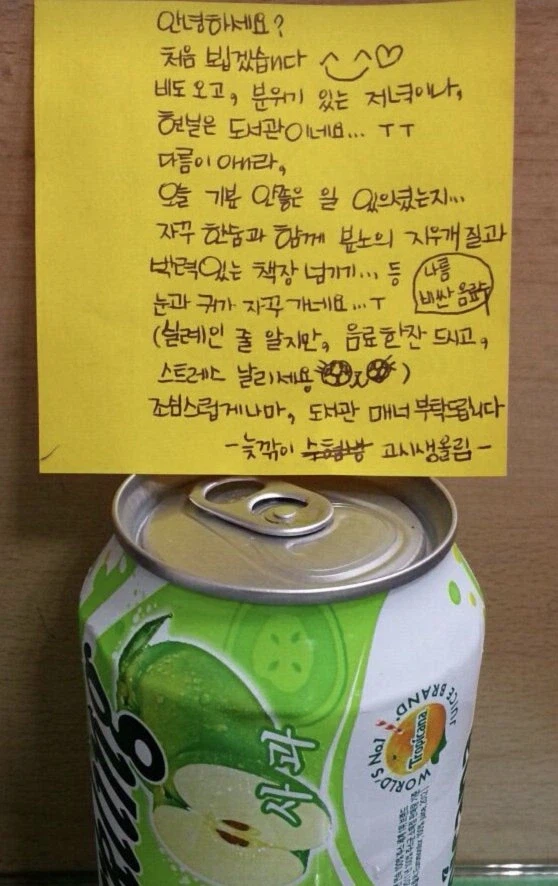 안녕하세요?
처음 뵙겠습니다 ^‿^♡
비도 오고, 분위기 있는 저녁이나,
현실은 도서관이네요... ㅜㅜ
다름이 아니라,
오늘 기분 안좋은 일 있으셨는지...
자꾸 한숨과 함께 분노의 지우개 질과
박력있는 책장 넘기기... 등
나름
비싼 음료수
눈과 귀가 자꾸 가네요...ㅜ
(실례인 줄 알지만, 음료한잔 드시고,
스트레스 날리세용)
조심스럽게나마, 도서관 매너 부탁드립니다
-늦깎이 고시생올림-
사과
WORLD'S No.1
JUICE BRAND.
Tropicana